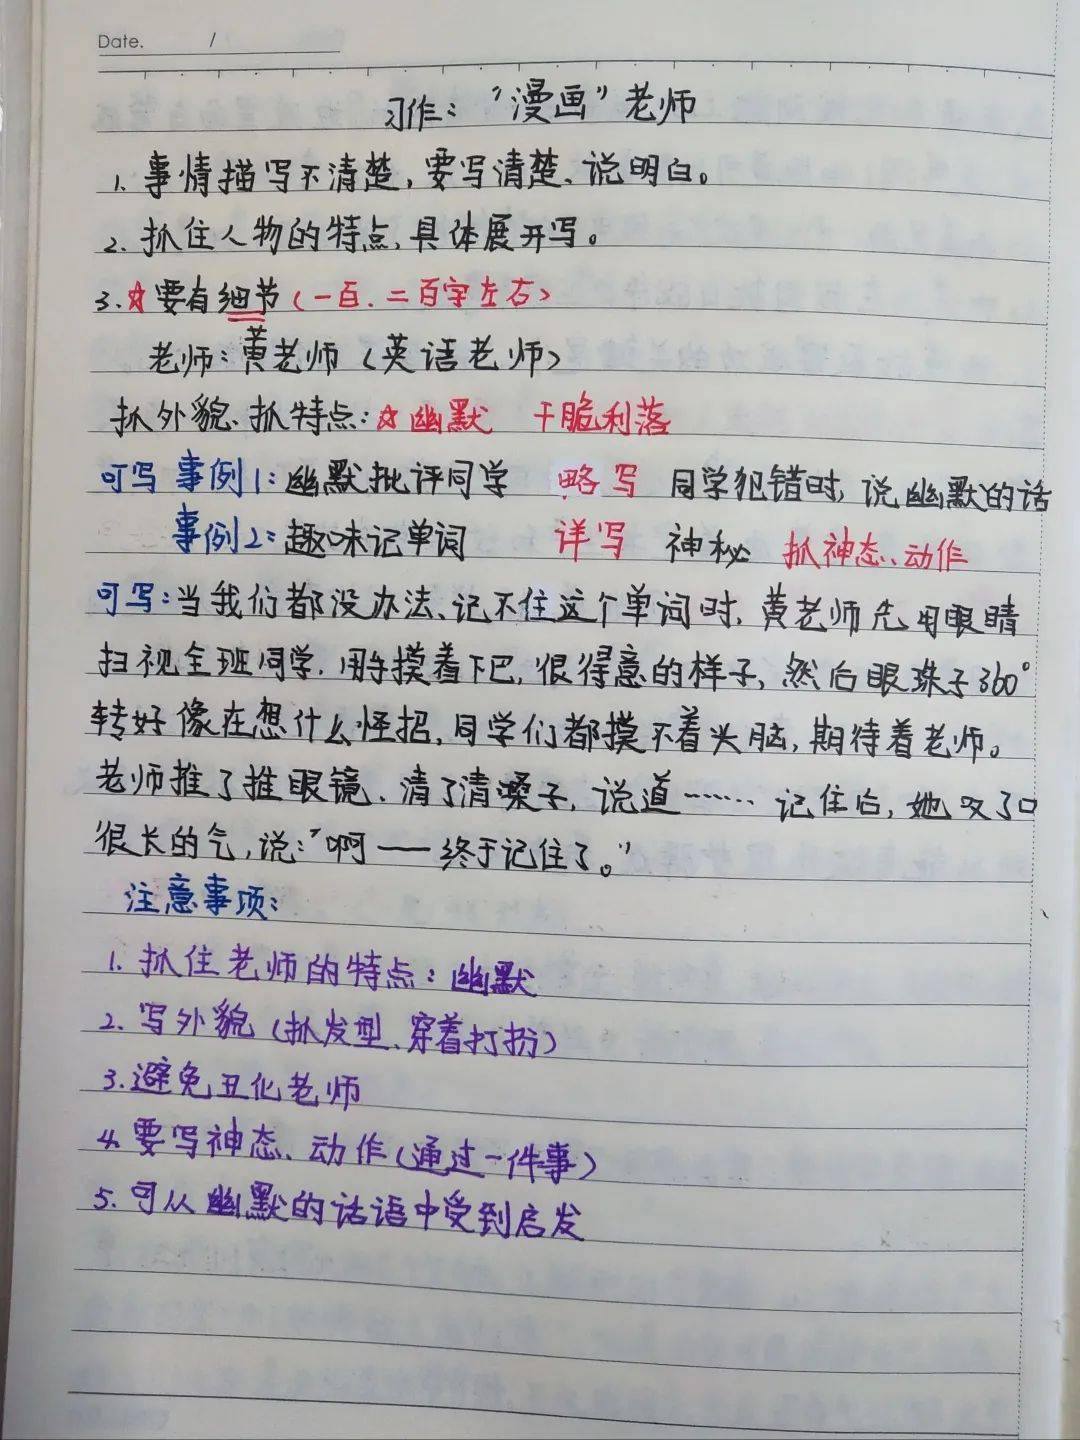 Date. /
习作：“漫画”老师
1. 事情描写不清楚，要写清楚、说明白。
2. 抓住人物的特点，具体展开写。
3. ☆要有细节（一百、二百字左右）
老师：黄老师（英语老师）
抓外貌、抓特点：☆幽默 干脆利落
可写 事例1：幽默批评同学 略写 同学犯错时，说幽默的话
事例2：趣味记单词 详写 神秘 抓神态、动作
可写：当我们都没办法、记不住这个单词时，黄老师先用眼睛
扫视全班同学，用手摸着下巴，很得意的样子，然后眼珠子360°
转好像在想什么怪招，同学们都摸不着头脑，期待着老师。
老师推了推眼镜、清了清嗓子，说道……记住后，她叹了口
很长的气，说：“啊——终于记住了。”
注意事项：
1. 抓住老师的特点：幽默
2. 写外貌（抓发型、穿着打扮）
3. 避免丑化老师
4. 要写神态、动作（通过一件事）
5. 可从幽默的话语中受到启发